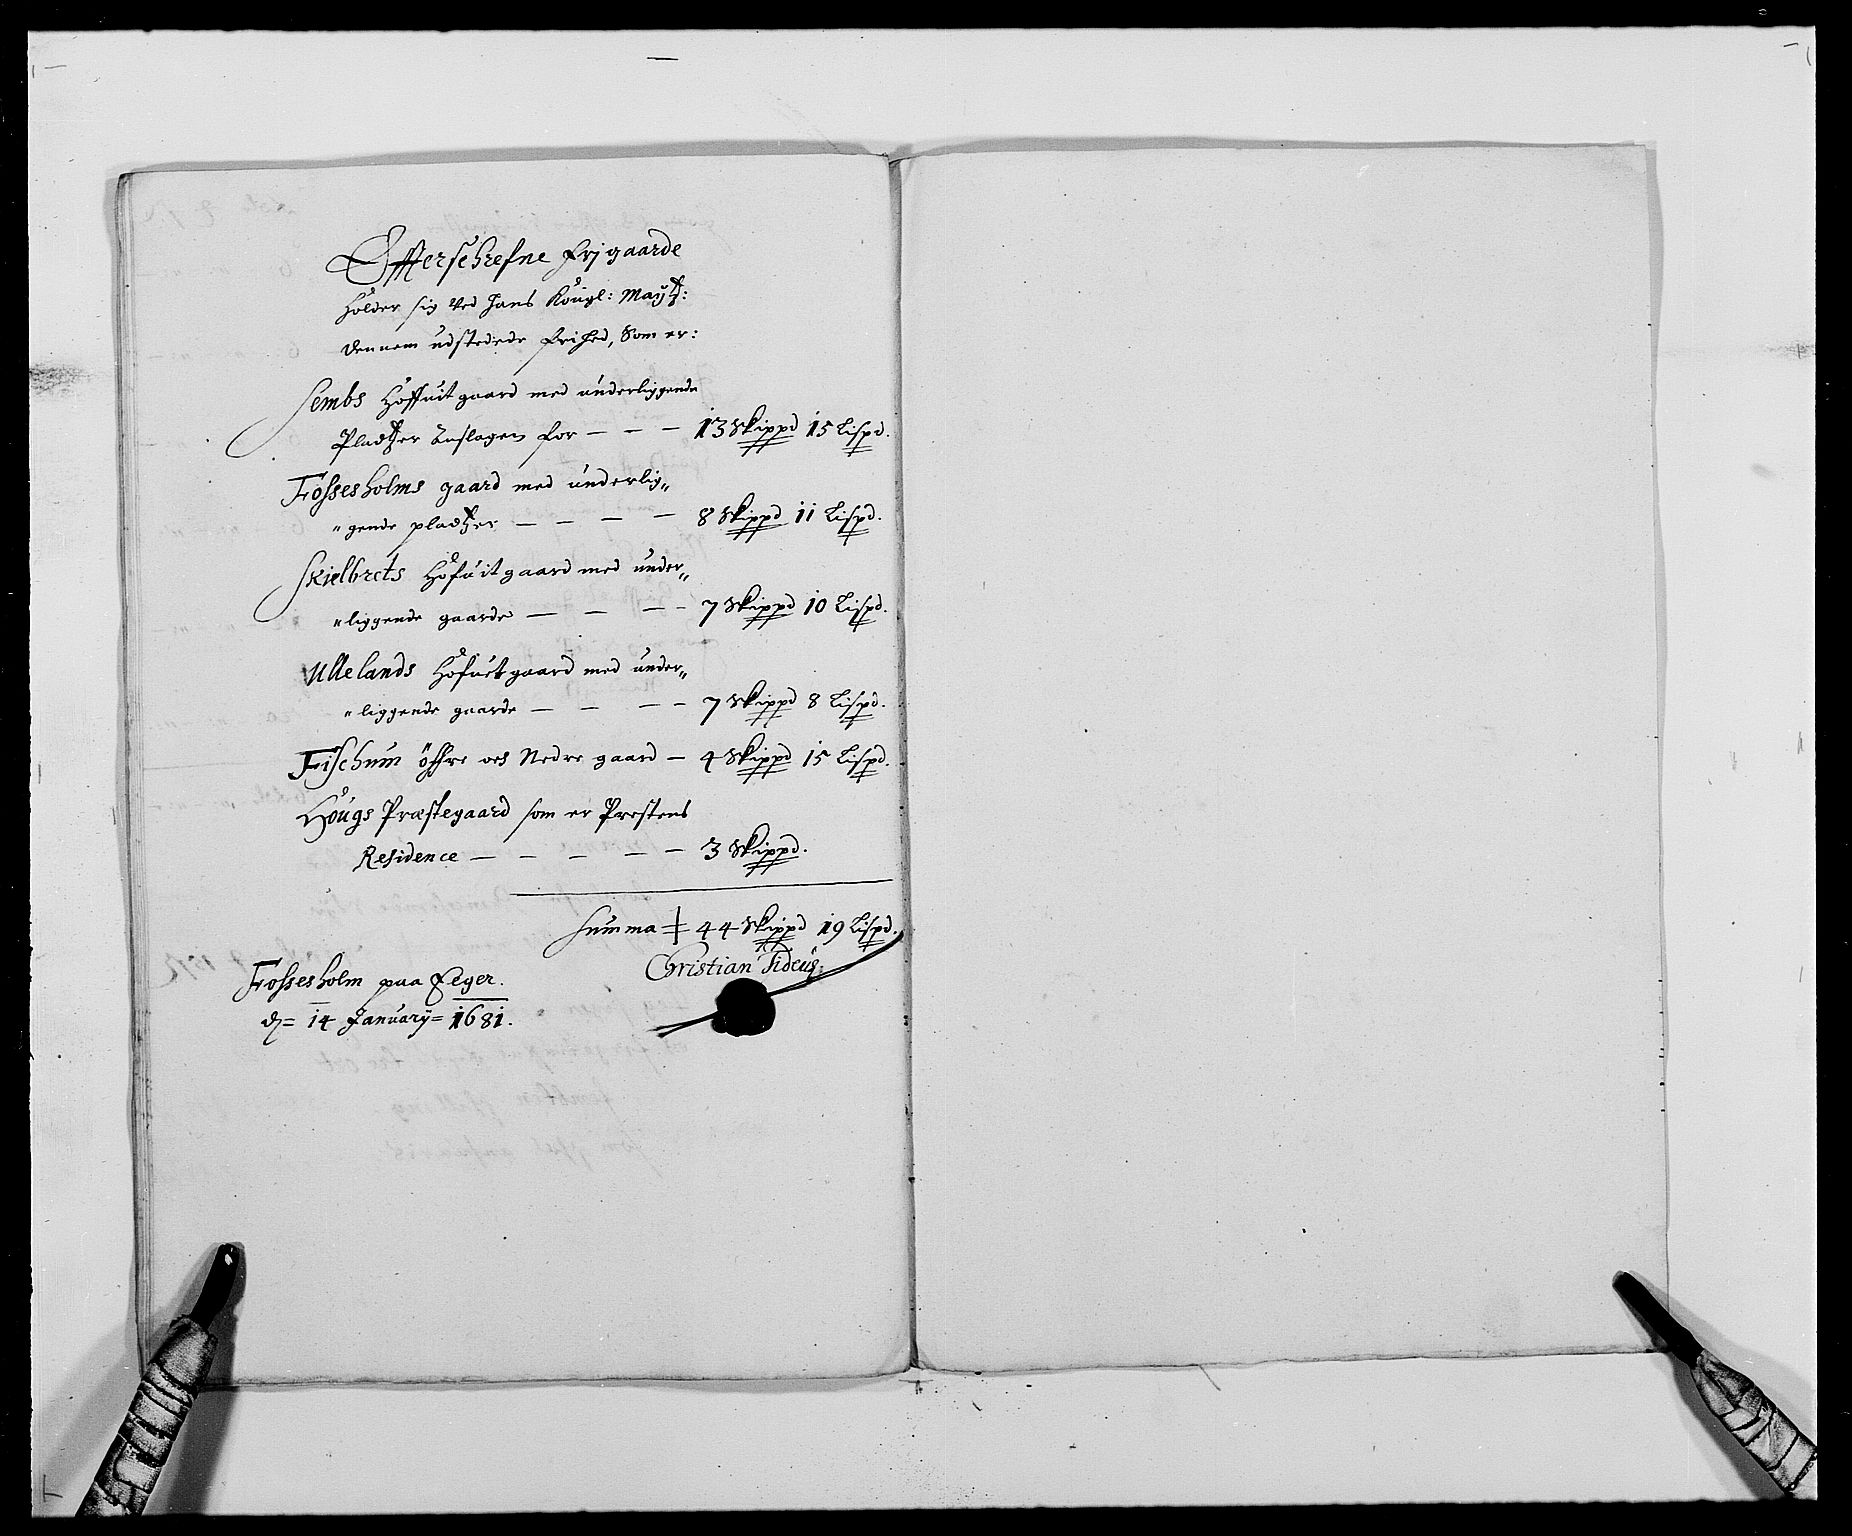 Effterschrefne Frj gaarde
Holder sig Ved Hans Kongl: Maytz:
dennem udstedede Frihed, Som er:
Sembs Hoffuit gaard med underliggende
Pladtzer Anslagen for — — — 13 Skippd 15 Lispd.
Fossesholms gaard med underlig„
„gende pladtzer — — — — 8 Skippd 11 Lispd.
Skielbrets Hofuit gaard med under„
„liggende gaarde — — — — 7 Skippd 10 Lispd.
Ullelands Hofuet gaard med under„
„liggende gaarde — — — — 7 Skippd 8 Lispd.
Fischum öffre och Nedre gaard — 4 Skippd 15 Lispd.
Hougs Præstegaard som er Prestens
Residence — — — — — 3 Skippd.
Summa ‡ 44 Skippd 19 Lispd.
Christian Tideus.
Fossesholm paa Eger.
d= 14 January= 1681.